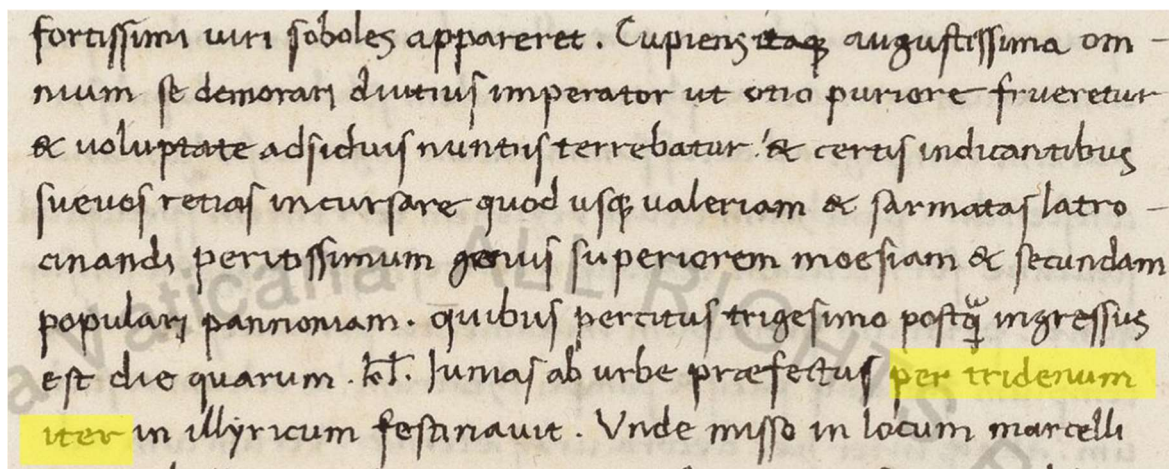 fortissimi uiri soboles appareret. Cupiens itaq augustissima om-
nium se demorari diutius imperator ut otio puriore frueretur
& uoluptate adsiduis nuntiis terrebatur. & certis indicantibus
sueuos retias incursare quod usq ualeriam & sarmatas latro-
cinandi peritissimum genus superiorem moesiam & secundam
populari pannoniam. quibus percitus trigesimo postq ingressus
est die quarum .kl. Iunias ab urbe præfectus per tridenum
iter in illyricum festinauit. Vnde misso in locum marcelli
Vaticana ALL RIGHTS